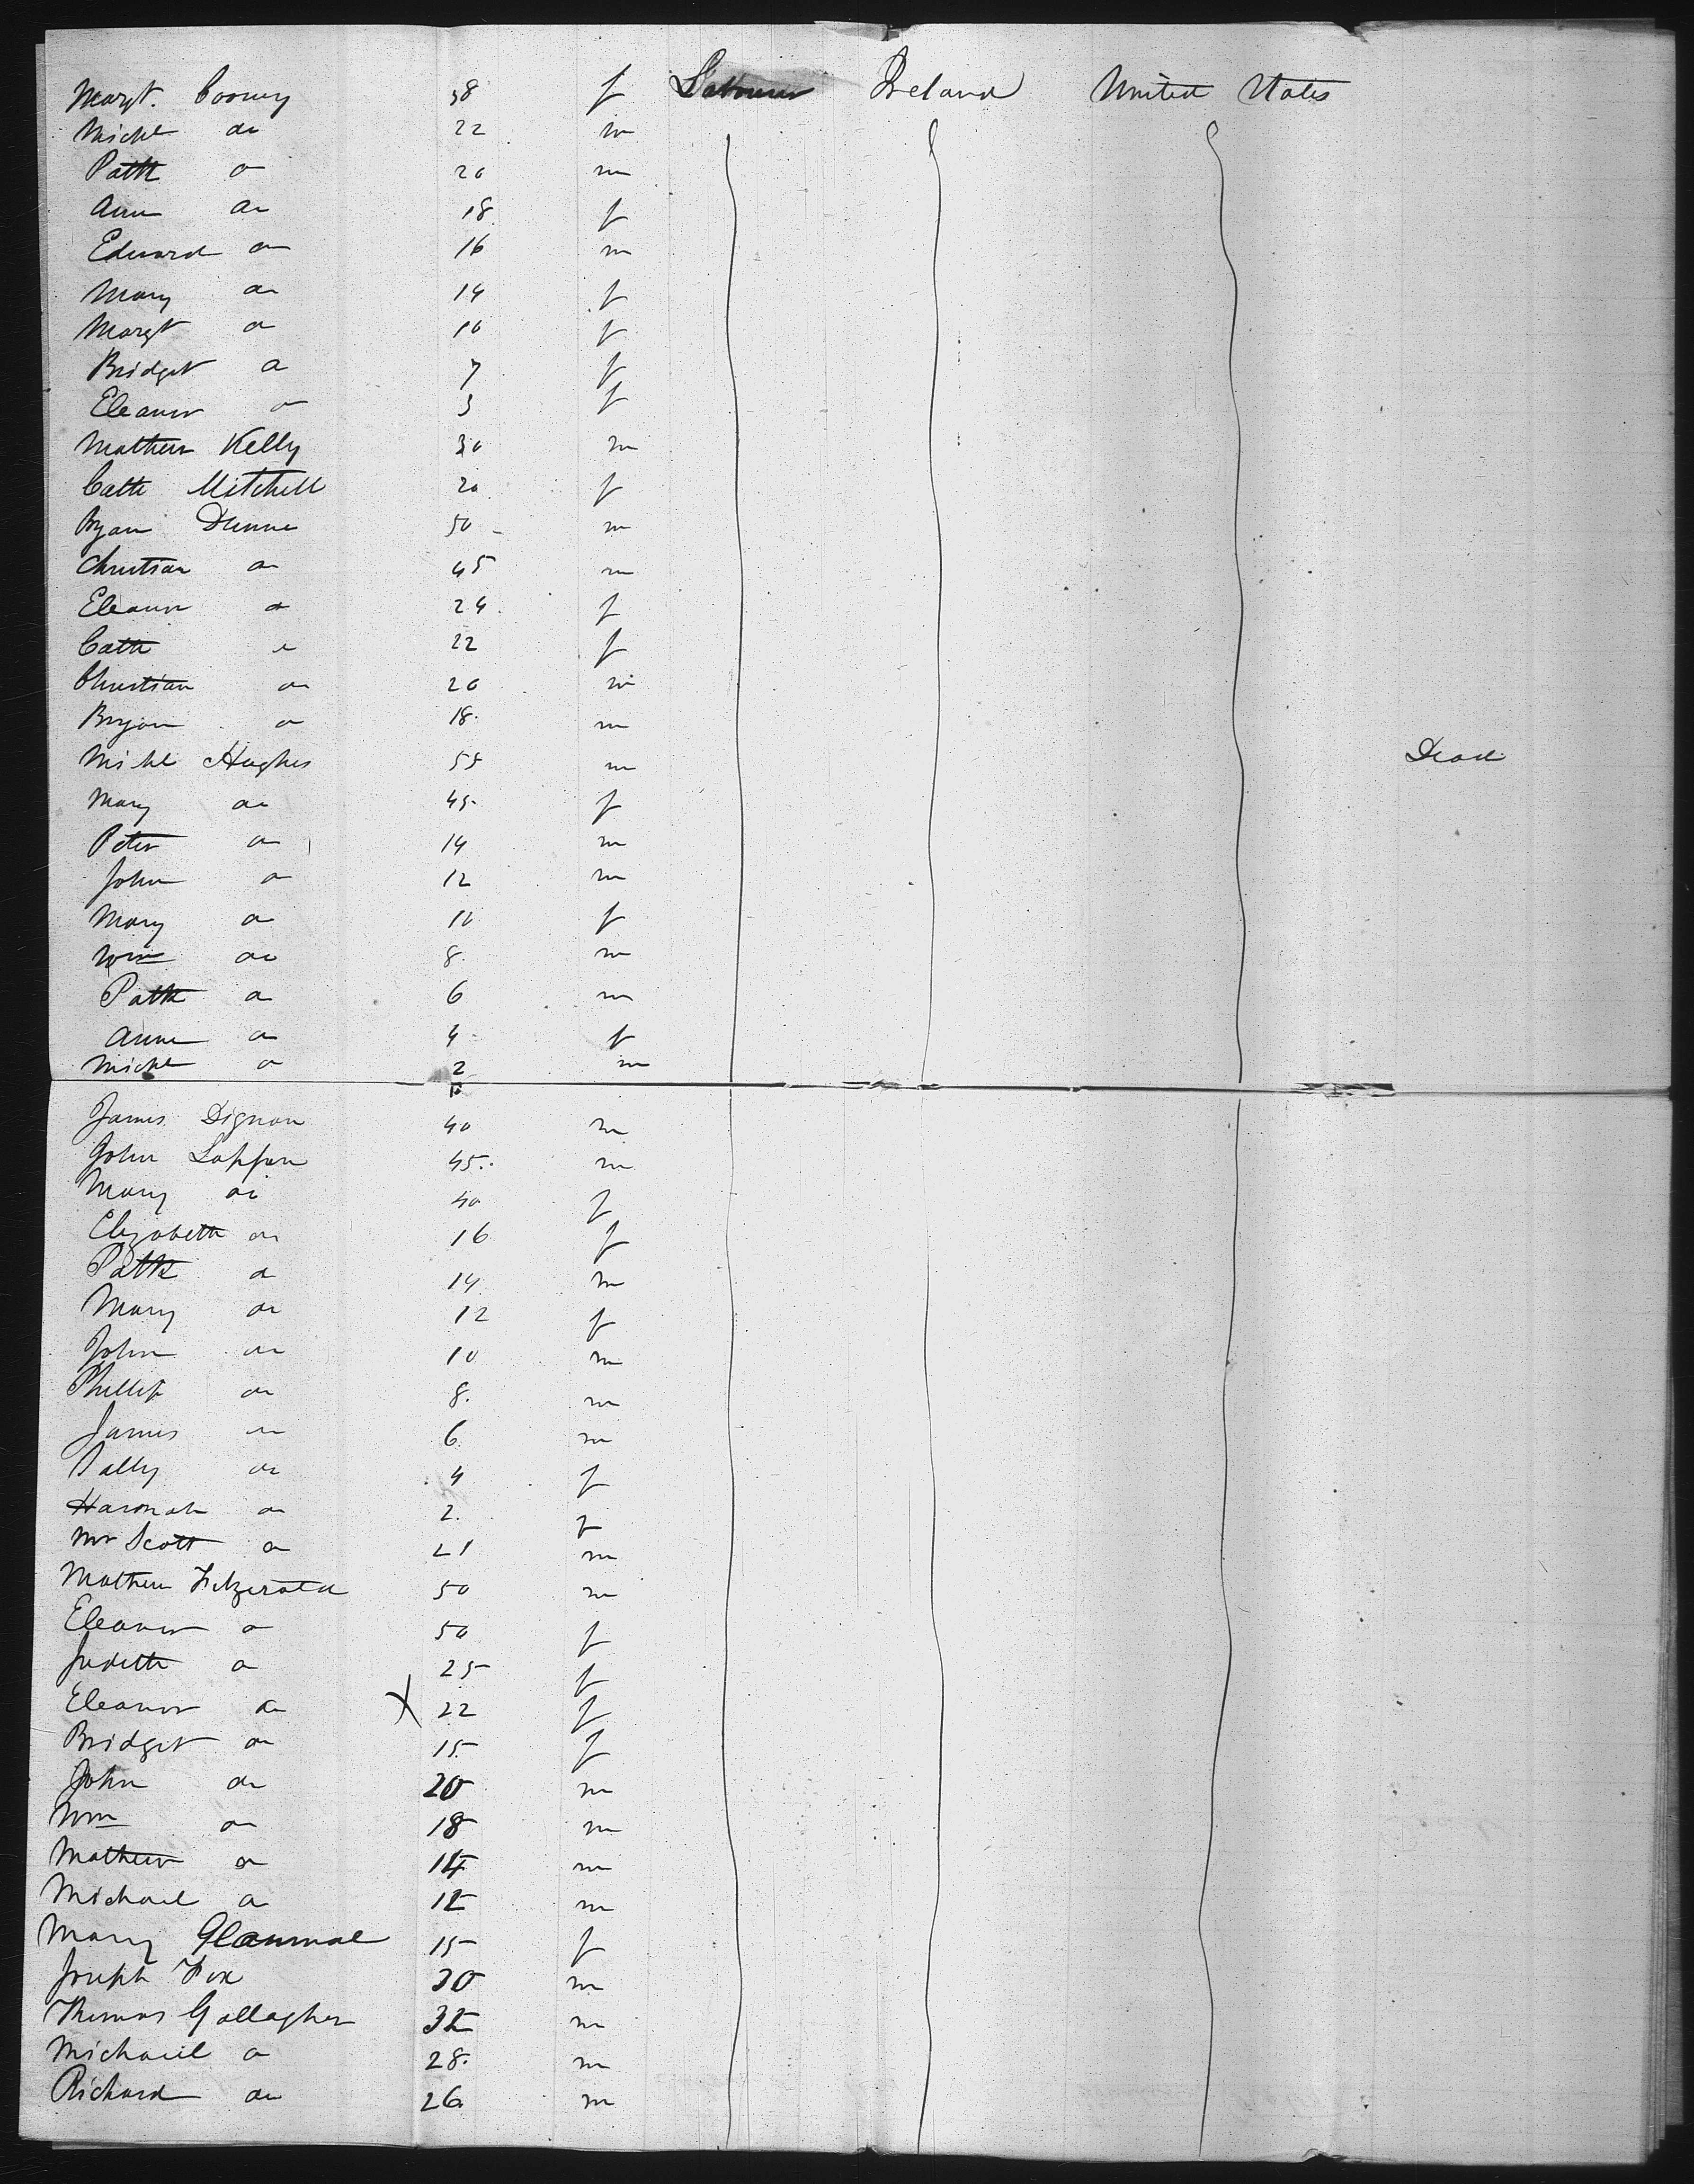 Margt. Cooney 38 f Labourer Ireland United States
Michl do 22 m
Patk do 20 m
Ann do 18 f
Edward do 16 m
Mary do 14 f
Margt do 10 f
Bridget do 7 f
Eleanor do 3 f
Mathew Kelly 30 m
Cath Mitchell 20 f
Bryan Dunne 50 m
Christian do 45 m
Eleanor do 24 f
Cath do 22 f
Christian do 20 m
Bryan do 18 m
Michl Hughes 55 m Dead
Mary do 45 f
Peter do 14 m
John do 12 m
Mary do 10 f
Wm do 8 m
Patk do 6 m
Anne do 4 f
Michl do 2 m
James Dignan 40 m
John Lappen 45 m
Mary do 40 f
Elizabeth do 16 f
Patk do 14 m
Mary do 12 f
John do 10 m
Phillip do 8 m
James do 6 m
Sally do 4 f
Hannah do 2 f
Mr Scott do 21 m
Mathew Fitzerald 50 m
Eleanor do 50 f
Judith do 25 f
Eleanor do X 22 f
Bridget do 15 f
John do 20 m
Wm do 18 m
Mathew do 14 m
Michael do 12 m
Mary 15 f
Joseph Fox 30 m
Thomas Gallagher 32 m
Michael do 28 m
Richard do 26 m